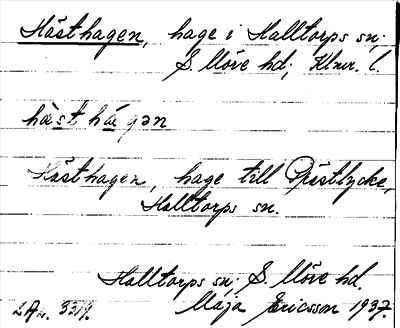 Hästhagen, hage i Halltorps sn;
S. Möre hd; Klmr. l.
hàsthágən
Hästhagen, hage till Prästlycke,
Halltorps sn.
Halltorps sn; S. Möre hd.
LAu. 3319. Maja Ericsson 1937.